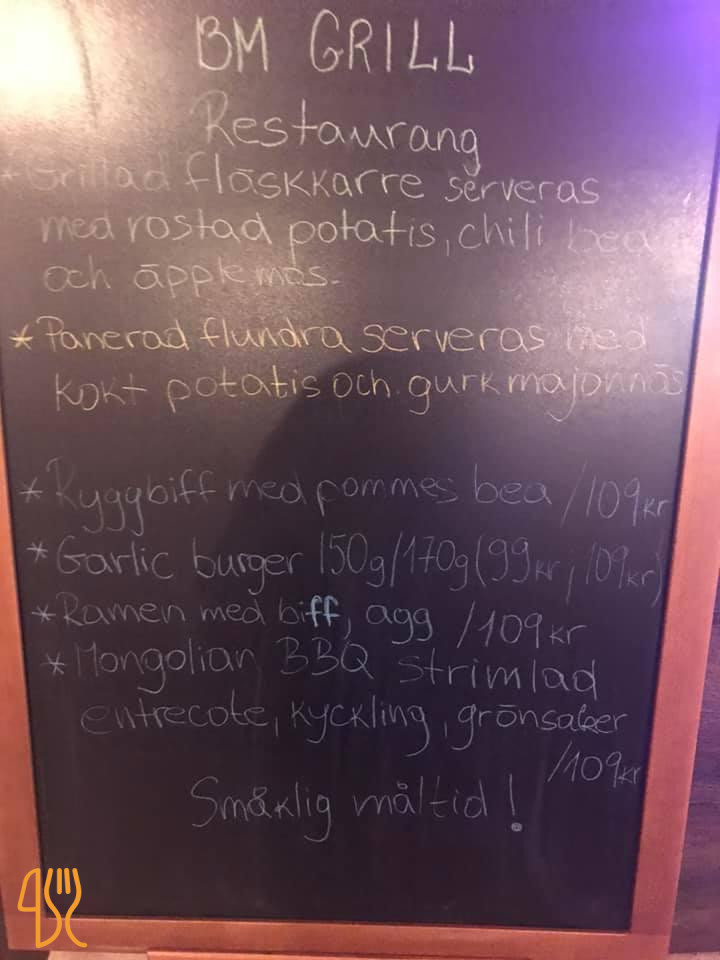 BM GRILL
Restaurang
* Grillad fläskkarre serveras
med rostad potatis, chili bea
och äpplemos.
* Panerad flundra serveras med
kokt potatis och gurkmajonnäs
* Ryggbiff med pommes bea /109kr
* Garlic burger 150g/170g (99kr, 109kr)
* Ramen med biff, agg /109kr
* Mongolian BBQ strimlad
entrecote, kyckling, grönsaker
/109kr
Smaklig måltid!